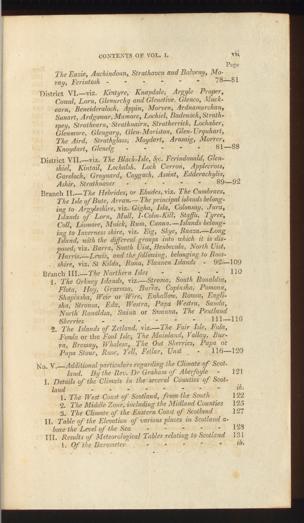 CONTENTS OF VOL. I. vii
Page
The Enzie, Auchindoun, Strathaven and Balveny, Mo-
ray, Ferintosh - - - - - - - 78—81
District VI.—viz. Kentyre, Knapdale, Argyle Proper,
Cowal, Lorn, Glenurchy and Glenetive. Glenco, Muck-
earn, Beneideraloch, Appin, Morven, Ardnamurchan,
Sunart, Ardgowar, Mamore, Lochiel, Badenoch, Strath-
spey, Stratheren, Strathnairn, Stratherrick, Lochaber,
Glenmore, Glengary, Glen-Moriston, Glen-Urquhart,
The Aird, Strathglass, Moydart, Arasaig, Morrer,
Knoydart, Glenelg - - - - - 81—88
District VII.—viz. The Black-Isle, &c. Ferindonald, Glen-
shiel, Kintail, Lochalsh, Loch Carron, Applecross,
Gareloch, Greynard, Coygach, Assint, Edderachylis,
Ashir, Strathnaver - - - - - 89—92
Branch II.—The Hebrides, or Ebudes, viz. The Cumbraes,
The Isle of Bute, Arran.—The principal islands belong-
ing to Argyleshire, viz. Gigha, Isla, Colonsay, Jura,
Islands of Lorn, Mull, I-Colm-Kill, Staffa, Tyree,
Coll, Lismore, Muick, Rum, Canna.—Islands belong-
ing to Inverness shire, viz. Eig, Skye, Raaza.—Long
Island, with the different groups into which it is dis-
posed, viz. Barra, South Uist, Benbecula, North Uist,
Harris.—Lewis, and the following, belonging to Ross-
shire, viz. St Kilda, Rona, Flannen Islands - 92—109
Branch III.—The Northern Isles - - - 110
1. The Orkney Islands, viz.—Stroma, South Ronaldsa,
Flota, Hoy, Graemsa, Burra, Copinsha, Pomona,
Shapinsha, Weir or Wire, Enhallow, Rousa, Engli-
sha, Stronsa, Eda, Westra, Papa Westra, Sanda,
North Ronaldsa, Suina or Swanna, The Pentland
Skerries - - - - - - 111—116
2. The Islands of Zetland, viz.—The Fair Isle, Fula,
Foula or the Foul Isle, The Mainland, Valley, Bur-
ra, Bressay, Whalsey, The Out Skerries, Papa or
Papa Stour, Rusy, Yell, Fetlar, Unst - 116—120
No. V.—Additional particulars regarding the Climate of Scot-
land. By the Rev. Dr Graham of Aberfoyle - 121
I. Details of the Climate in the several Counties of Scot-
land - - - - - - - - ib.
1. The West Coast of Scotland, from the South 122
2. The Middle Zone, including the Midland Counties 125
3. The Climate of the Eastern Coast of Scotland 127
II. Table of the Elevation of various places in Scotland a-
bove the Level of the Sea - - - - 128
III. Results of Meteorological Tables relating to Scotland 131
1. Of the Barometer - - - - - ib.